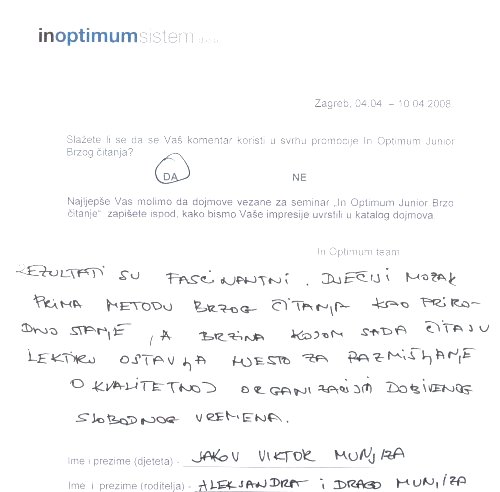 inoptimumsistem
Zagreb, 04.04. – 10.04.2008.
Slažete li se da se Vaš komentar koristi u svrhu promocije In Optimum Junior
Brzog čitanja?
DA NE
Najljepše Vas molimo da dojmove vezane za seminar „In Optimum Junior Brzo
čitanje“ zapišete ispod, kako bismo Vaše impresije uvrstili u katalog dojmova.
In Optimum team
REZULTATI SU FASCINANTNI. DJEČIJI MOZAK
PRIMA METODU BRZOG ČITANJA KAO PRIRO-
DNO STANJE, A BRZINA KOJOM SADA ČITAJU
LEKTIRU OSTAVLJA MJESTO ZA RAZMIŠLJANJE
O KVALITETNOJ ORGANIZACIJI DOBIVENOG
SLOBODNOG VREMENA.
Ime i prezime (djeteta) - JAKOV VIKTOR MUNJIZA
Ime i prezime (roditelja) - ALEKSANDRA I DRAGO MUNJIZA